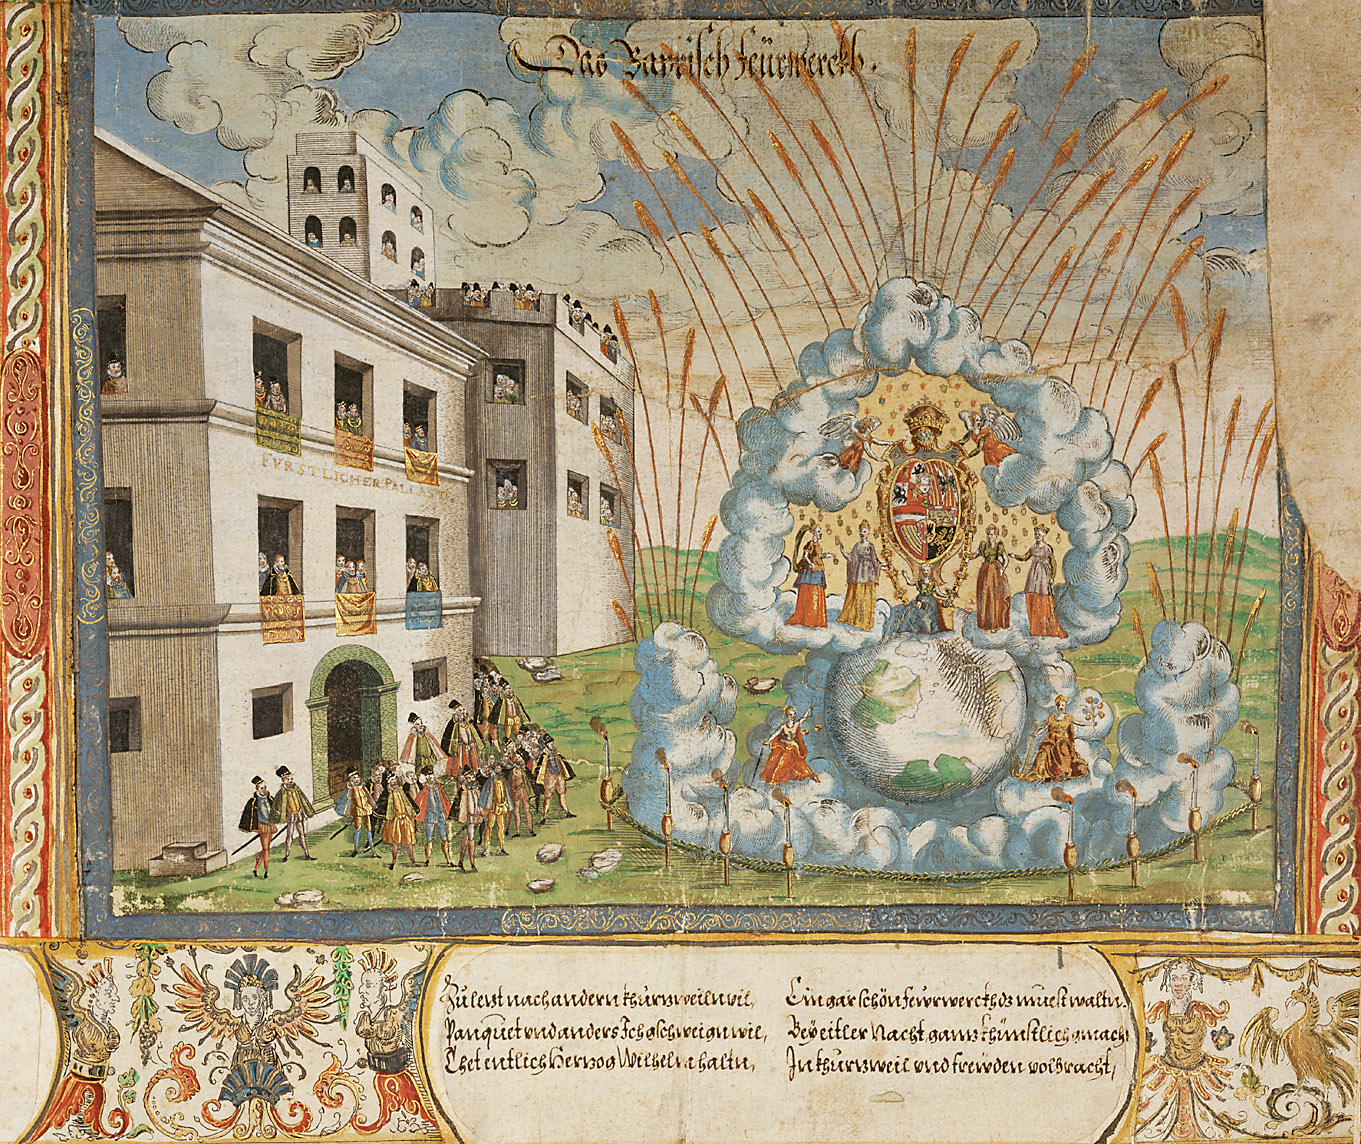 Das Bayrisch feürwerckh.
FVRSTLICHER PALLAST
Zuletzt nach andern khurzweiln vil,
Panquet vnd anders Ich gschweign wil,
Thet entlich Herzog Wilhelm haltn,
Ein gar schön feurwerckh des muest waltn.
Bey eitler Nacht ganz khünstlich gmacht
In khurzweil vnd frewden volbracht,